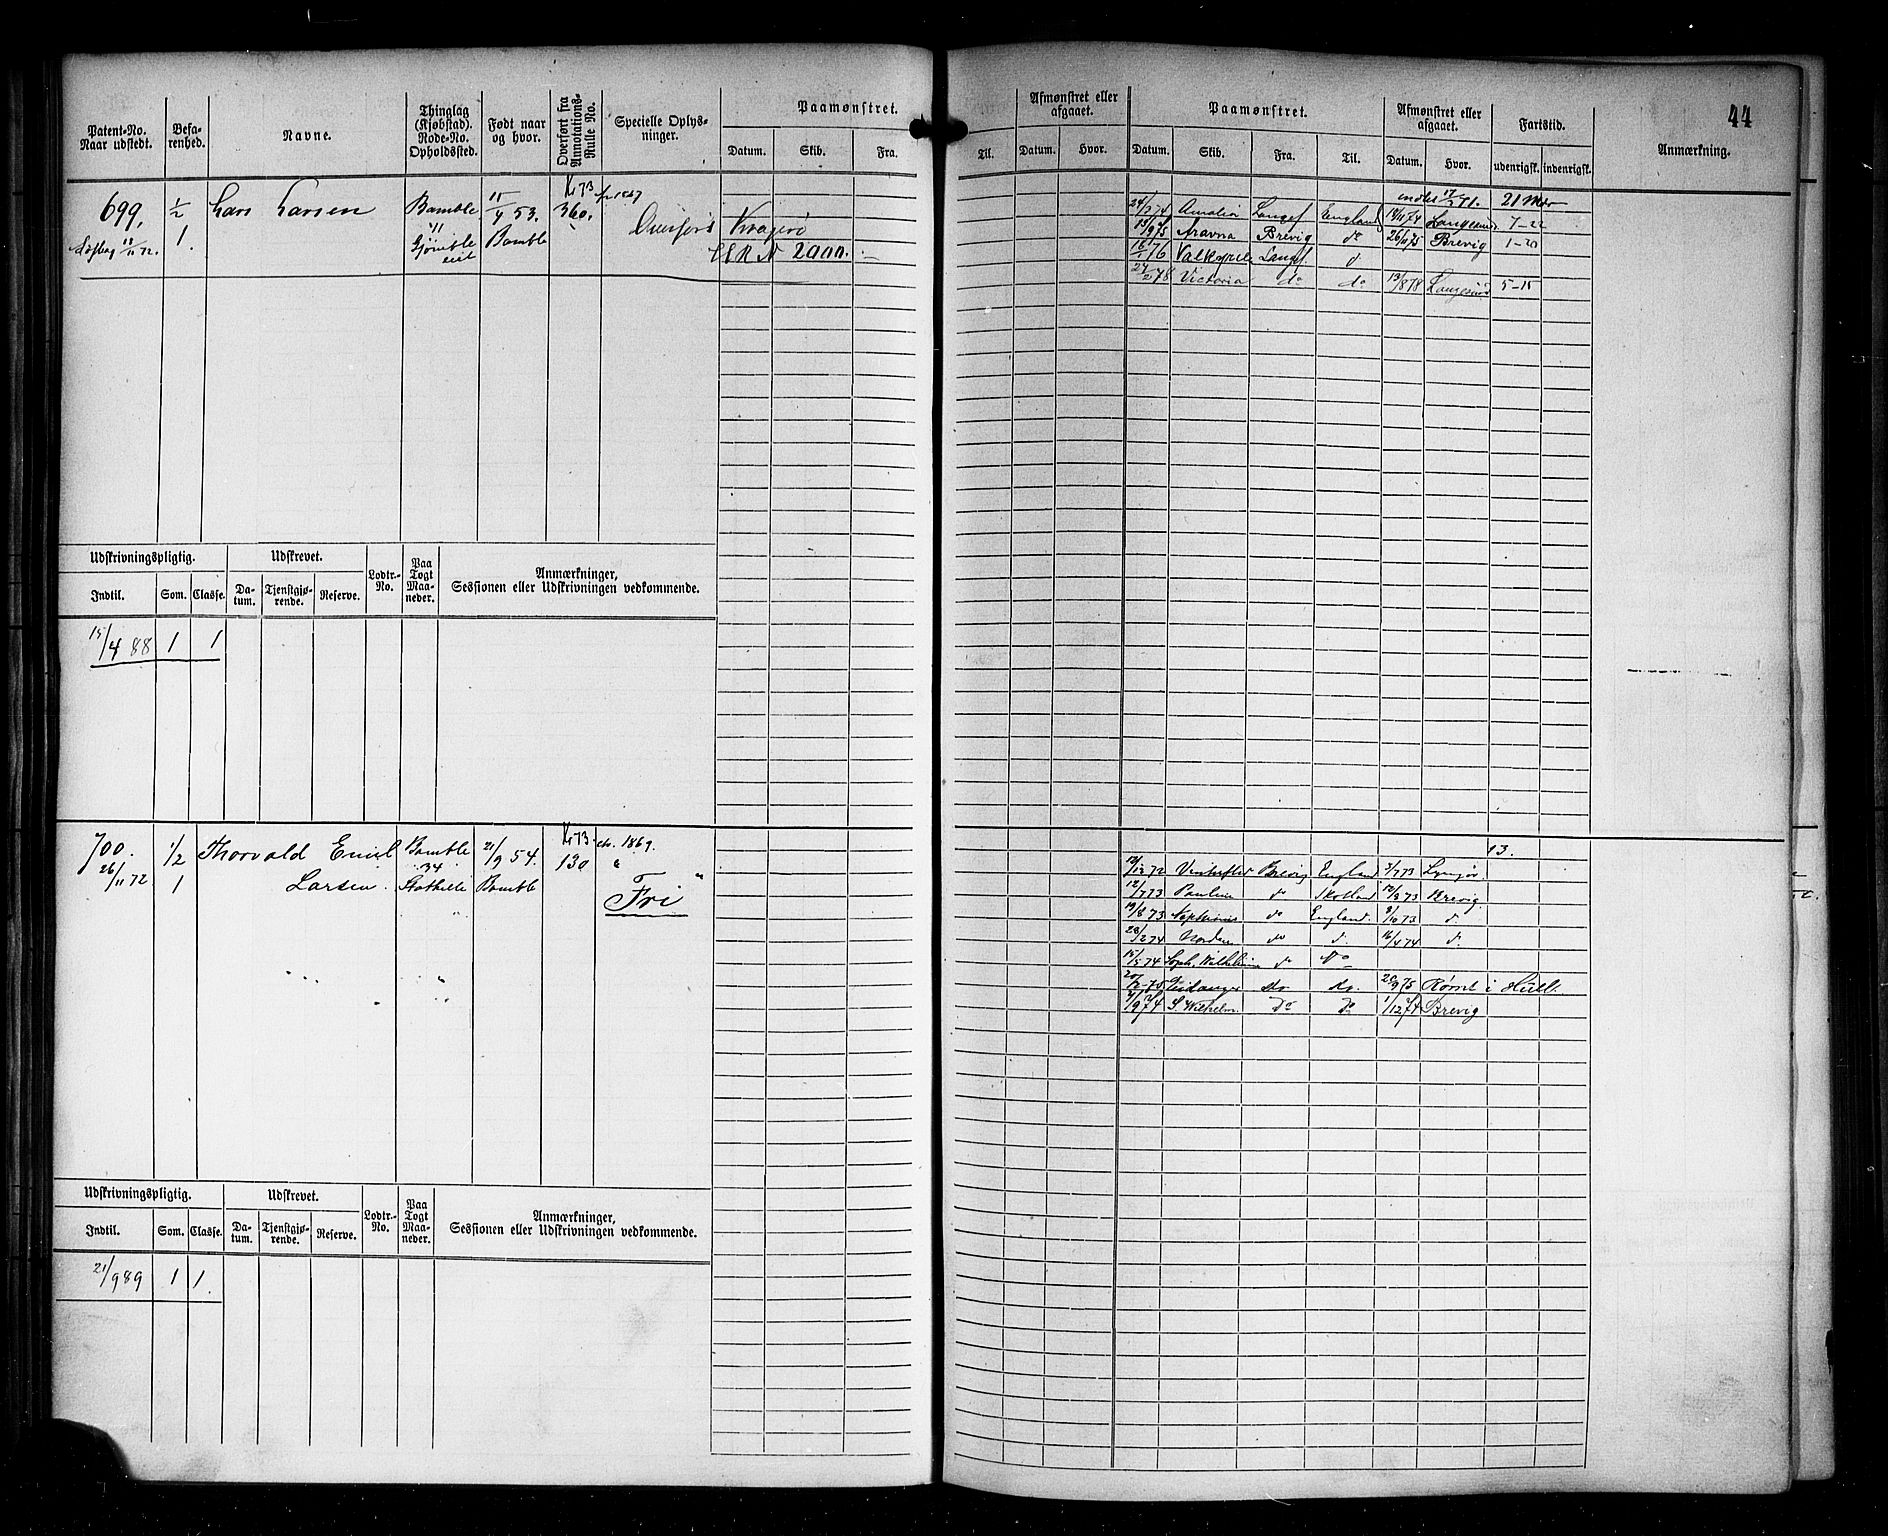 44
Patent-No. Naar udstedt.
Befa-renhed.
Navne.
Thinglag (Kjøbstad). Rode-No. Opholdssted.
Født naar og hvor.
Overført fra Annotations-Rulle No.
Specielle Oplys-ninger.
Paamønstret.
Datum. Skib. Fra. Til.
Afmønstret eller afgaaet.
Datum. Hvor.
Paamønstret.
Datum. Skib. Fra. Til.
Afmønstret eller afgaaet.
Datum. Hvor.
Fartstid.
udenrigsk. indenrigsk.
Anmærkning.
699. 1/2 Lars Larsen Bamble 15/4 53. Kr 73 360.
11/11 72. 1. 11 Bamble
Overført Kragerø
H R N 2900.
17/2 71. 21 Mdr
24/3 74 Amalia Langes. England 14/11 74 Langesund 7-22
13/9 75 Aravna Brevig do 26/11 75 Brevig 1-20
Langes. d
24/2 78 Victoria do do 13/8 78 Langesund 5-15
Udskrivningspligtig. Udskrevet. Lodtr.-No. Paa Togt Maa-neder. Anmærkninger, Sessionen eller Udskrivningen vedkommende.
Indtil. Som. Classe. Da-tum. Tjenstgjø-rende. Reserve.
15/4 88 1 1
700. 1/2 Thorvald Emil Bamble 21/9 54. Kr 73. 130 ch. 1869.
26/11 72 1 Larsen. 34 Stathelle Bamble
Fri
13.
Brevig England 3/7 73
12/7 73 Pauline do Skotland 12/8 73 Brevig
19/8 73 Neptunus do England. 9/10 73 d.
28/2 74 Norden do d. 16/4 74 d.
15/5 74 Soph. Wilhelmine do Do
do do. 9/75 Rømt i Hull.
S. Wilhelm. Do Do 1/12 74 Brevig
Udskrivningspligtig. Udskrevet. Lodtr.-No. Paa Togt Maa-neder. Anmærkninger, Sessionen eller Udskrivningen vedkommende.
Indtil. Som. Classe. Da-tum. Tjenstgjø-rende. Reserve.
21/9 89 1 1.